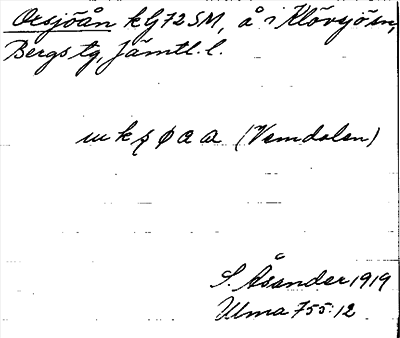 Orsjöån kG72SM, å i Klövsjösn,
Bergs tg, Jämtl. l.
(Vemdalen)
S. Åsander 1919
Ulma 755:12